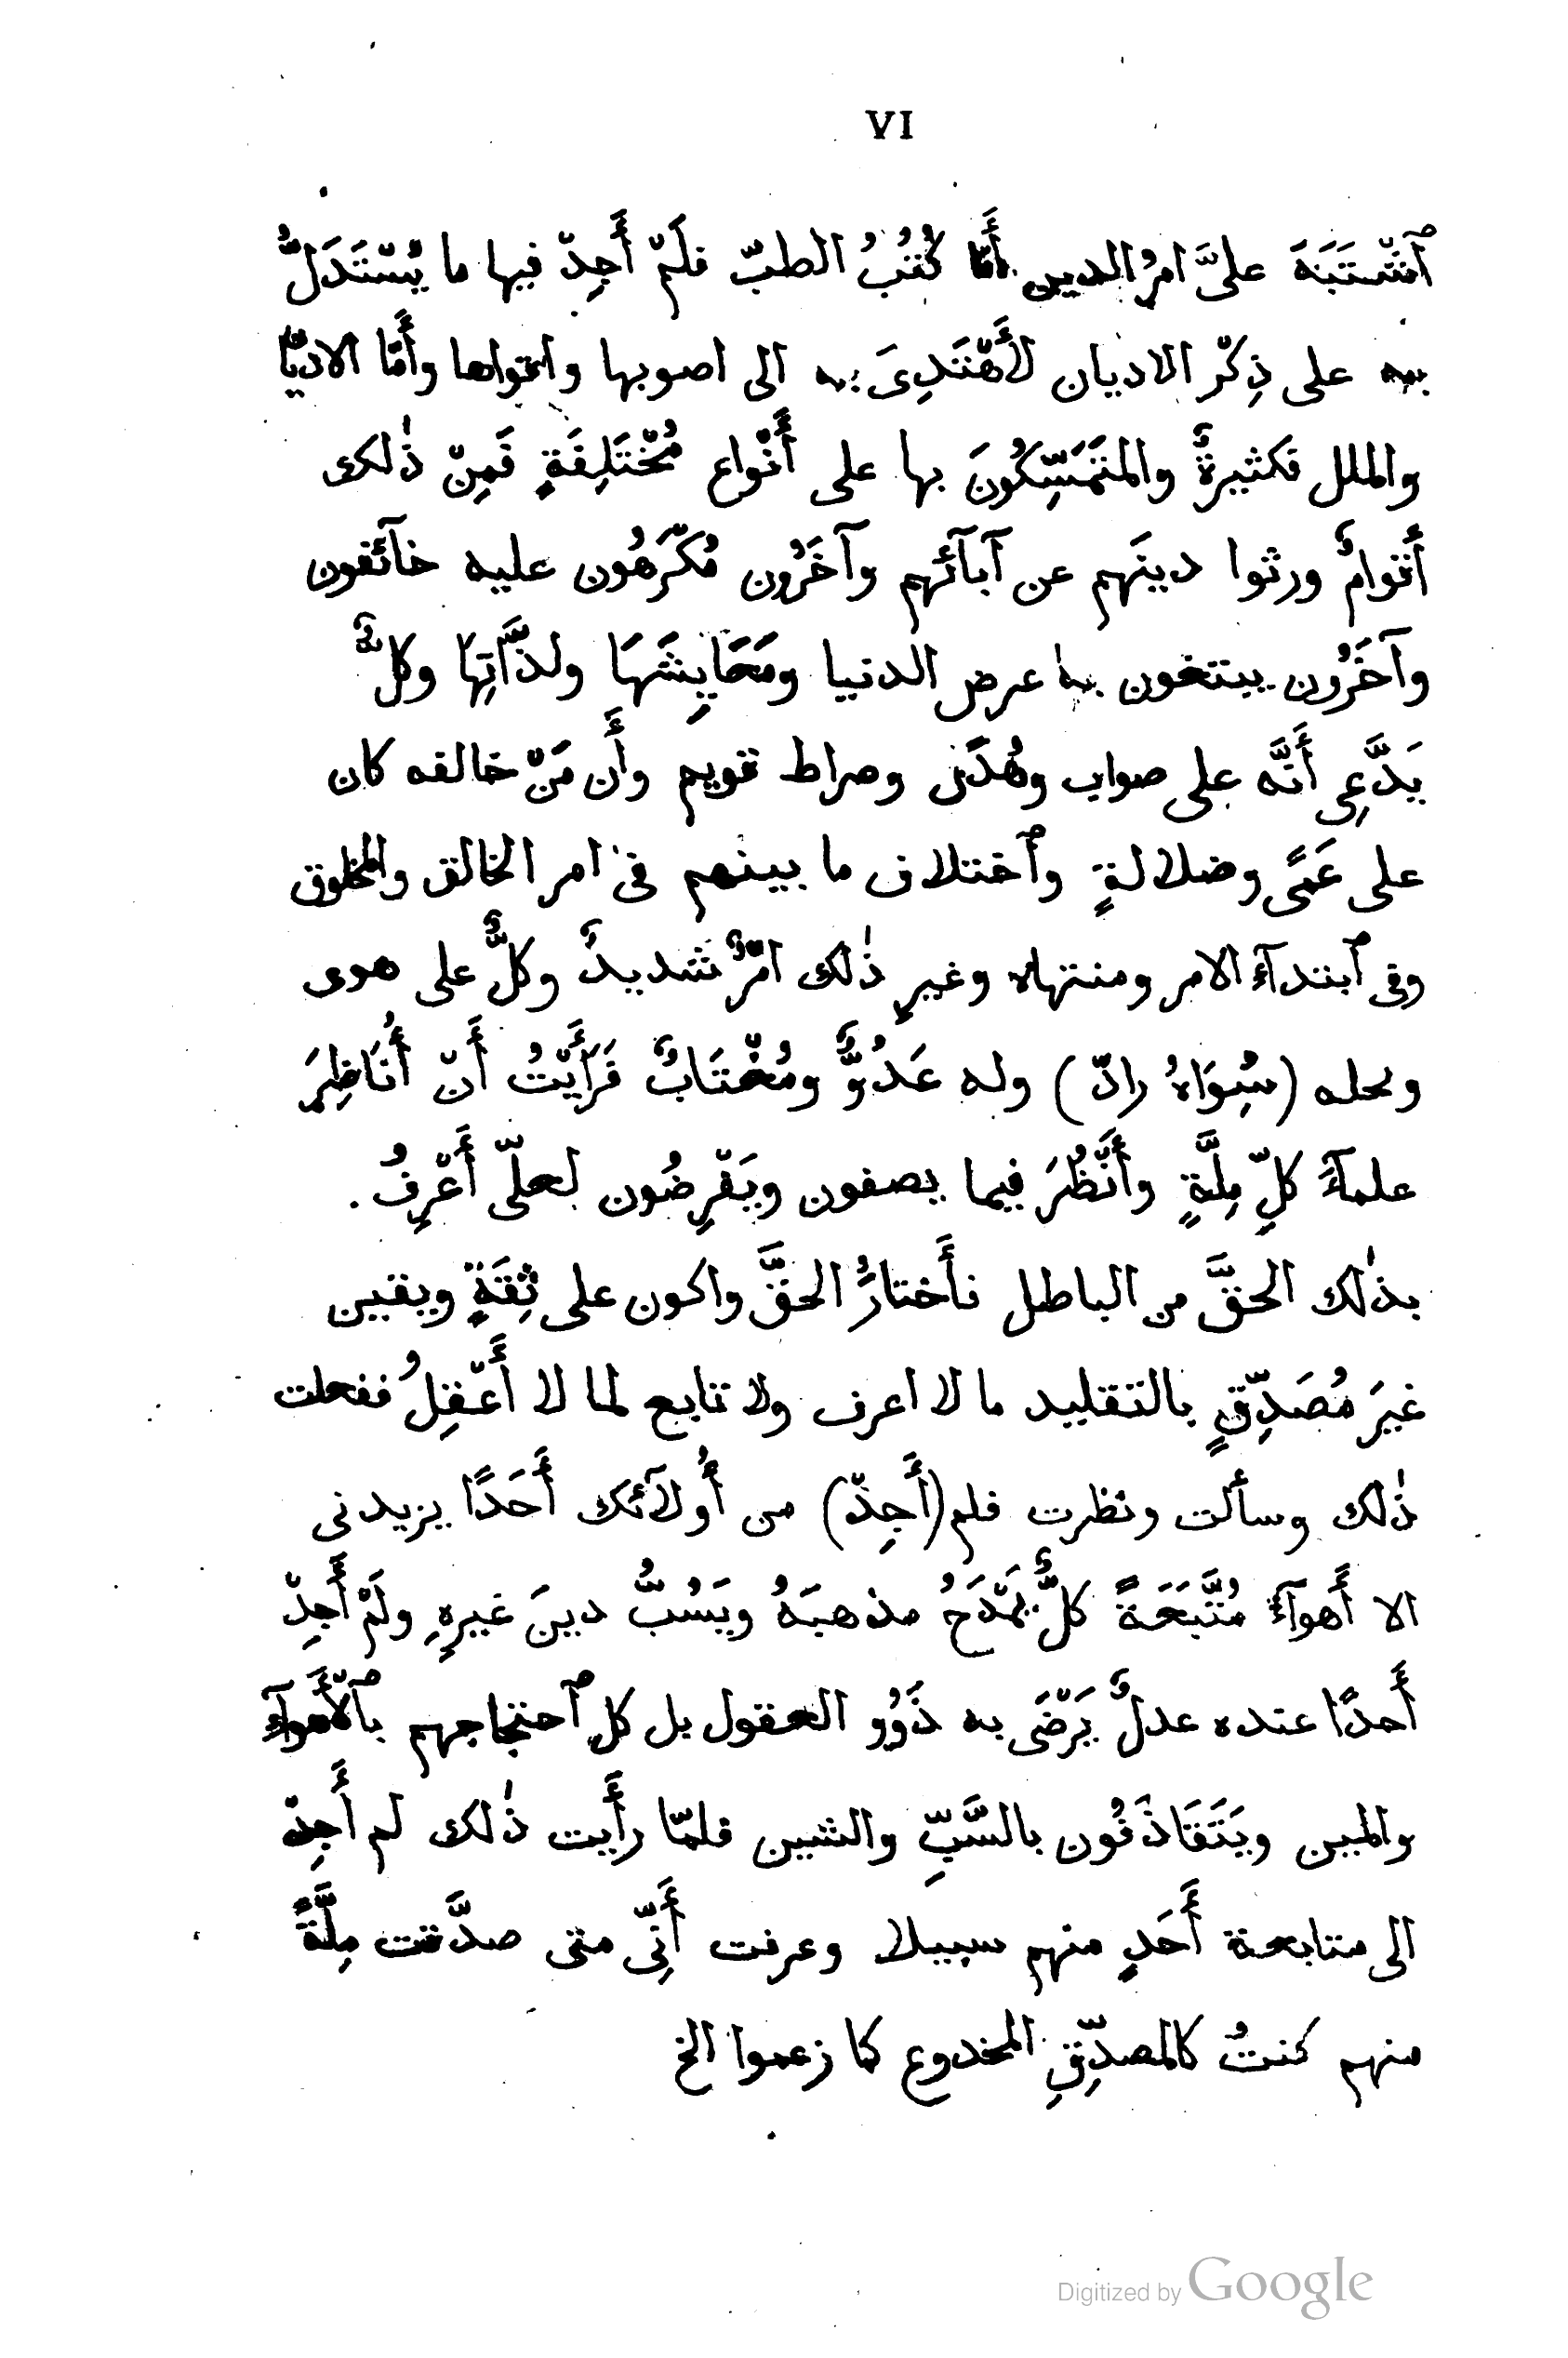 VI
ٱشْتَبَهَ علىَّ امرُ الدين أَمّا كُتُبُ الطبّ فلَمْ أَجِدْ فيها ما يُسْتَدَلُّ
به على ذِكْر الاديان لأَهْتَدِىَ به الى اصوبها واقواها وأَمّا الاديا
والملل فكثيرةٌ والمتَمَسِّكُونَ بها على أَنْواع مُخْتَلِفَةٍ فَمِنْ ذٰلك
أَقوامٌ ورثوا دينَهم عن آبآئهم وآخَرُون مُكْرَهُون عليه خآئفون
وآخَرُون يبتغون به عرض الدنيا ومَعَايِشَهَا ولذَّاتِهَا وكلٌّ
يَدَّعِى أَنَّه على صواب وهُدًى وصراط قويم وأَن مَنْ خالفه كان
على عَمًى وضلالةٍ وٱختلاف ما بينهم فى امر الخالق والمخلوق
وفى ٱبتدآء الامر ومنتهاه وغيرِ ذٰلك امْرٌ شديدٌ وكلٌّ على هوى
ونحله (سِوَاهُ رادّ) وله عَدُوٌّ ومُغْتَابٌ فَرَأَيْتُ أَنْ أُنَاظِرَ
علمآءَ كلِّ مِلَّةٍ وأَنْظُرَ فيما يصفون ويَفْرِضُون لعلّى أَعْرِفُ.
بذٰلك الحقَّ من الباطل فأَختارُ الحقَّ واكون على ثِقَةٍ ويقين
غيرَ مُصَدِّقٍ بالتقليد ما لا اعرف ولا تابع لما لا أَعْقِلُ ففعلت
ذٰلك وسألت ونظرت فلم (أَجِدْ) من أُولآئك أَحَدًا يزيدنى
الا أَهوآءً مُتَّبَعَةً كلٌّ يَمْدَحُ مذهبَهُ ويَسُبُّ دينَ غيرِهِ ولَمْ أَجِدْ
أَحدًا عنده عدلٌ يَرْضَى به ذَوُو العقول بل كل ٱحتجاجهم بٱلأَهوآء
والمين ويَتَقَاذَفُون بالسَّبِّ والشين فلمّا رأَيت ذٰلك لم أَجِدْ
الى متابعة أَحَدٍ منهم سبيلا وعرفت أَنِّى متى صدَّقت مِلَّةً
منهم كنتُ كالمصدِّقِ المخدوع كما زعموا الخ
Digitized by Google